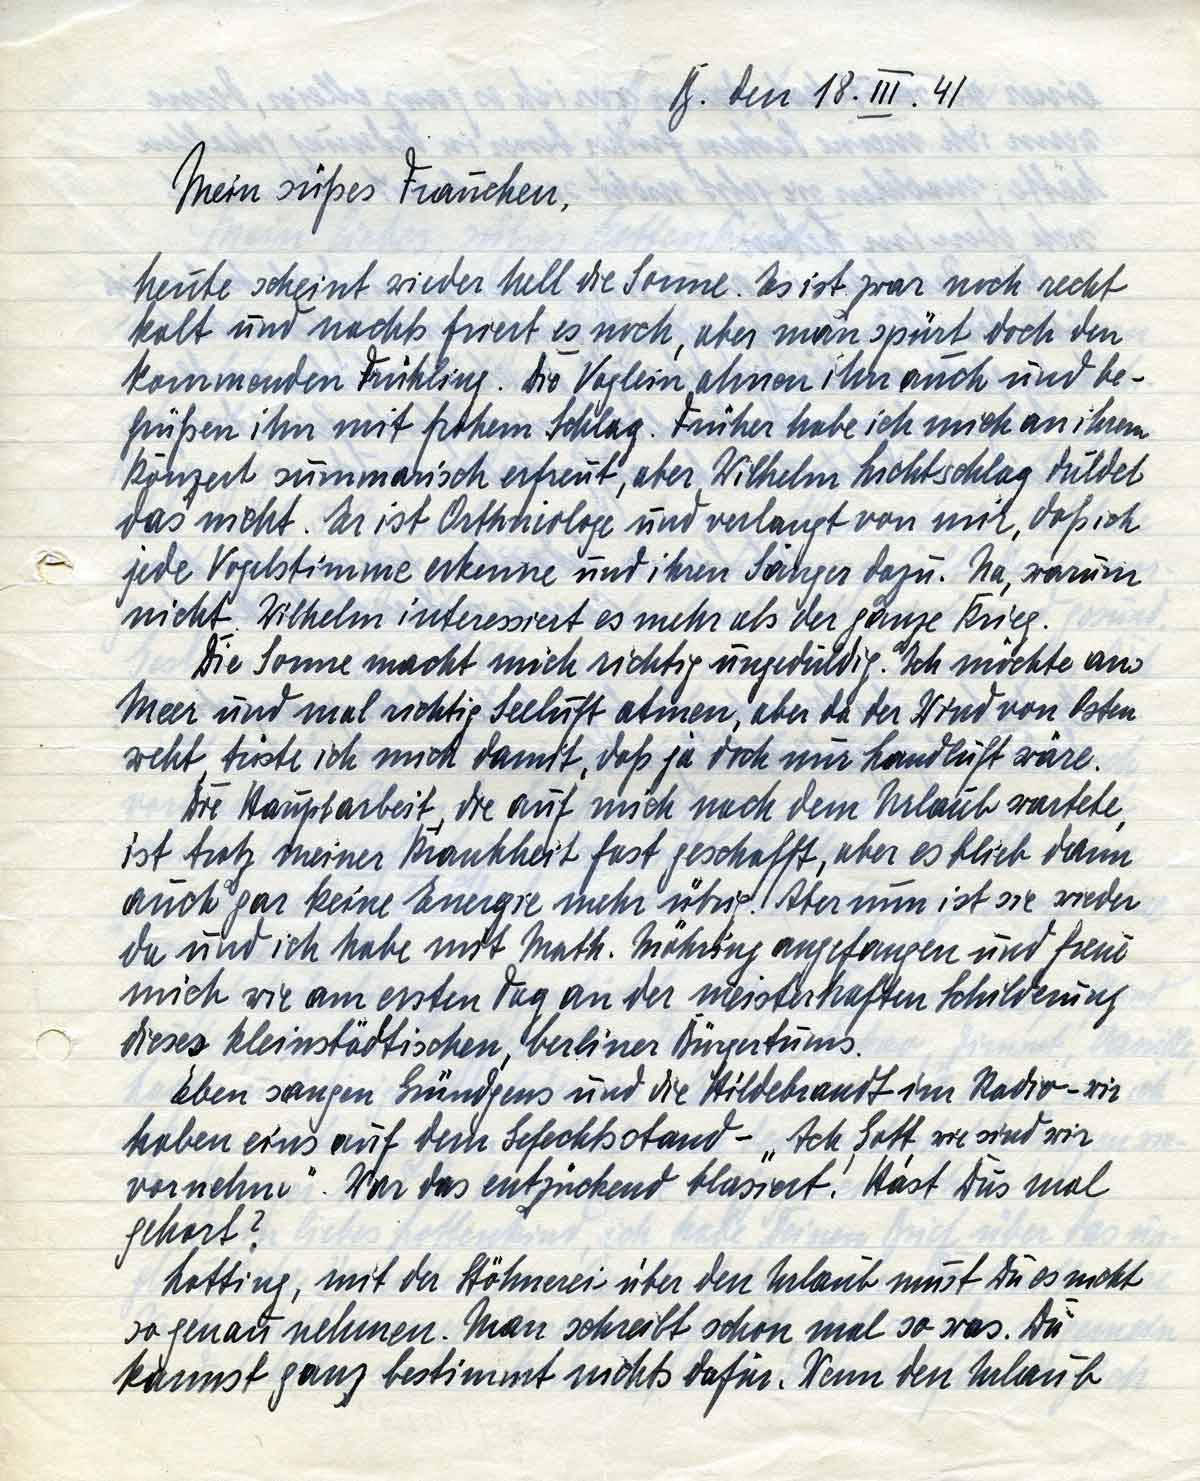 den 18. III. 41
Mein süßes Frauchen,
heute scheint wieder hell die Sonne. Es ist zwar noch recht
kalt und nachts friert es noch, aber man spürt doch den
kommenden Frühling. Die Voglein ahnen ihn auch und be-
grüßen ihn mit frohem Schlag. Früher habe ich mich an ihrem
Konzert summarisch erfreut, aber Wilhelm duldet
das nicht. Er ist Orthniologe und verlangt von mir, daß ich
jede Vogelstimme erkenne und ihren Sänger dazu. Na, warum
nicht. Wilhelm interessiert es mehr als der ganze Krieg.
Die Sonne macht mich richtig ungeduldig. Ich möchte ans
Meer und mal richtig Seeluft atmen, aber da der Wind von Osten
weht, töste ich mich damit, daß ja doch nur Landluft wäre.
Die Hauptarbeit, die auf mich nach dem Urlaub wartete,
ist trotz meiner Krankheit fast geschafft, aber es blieb dann
auch gar keine Energie mehr übrig. Aber nun ist sie wieder
da und ich habe mit Math. Möhring angefangen und freue
mich wie am ersten Tag an der meisterhaften Schilderung
dieses kleinstädtischen, berliner Bürgertums.
Eben sangen Gründgens und die Hildebrandt im Radio – wir
haben eins auf dem Gefechtsstand – „Ach Gott, wie sind wir
vornehm“. War das entzückend blasiert! Hast Dus mal
gehört?
Lotting, mit der Stöhnerei über den Urlaub must Du es nicht
so genau nehmen. Man schreibt schon mal so was. Du
kannst ganz bestimmt nichts dafür. Wenn den Urlaub